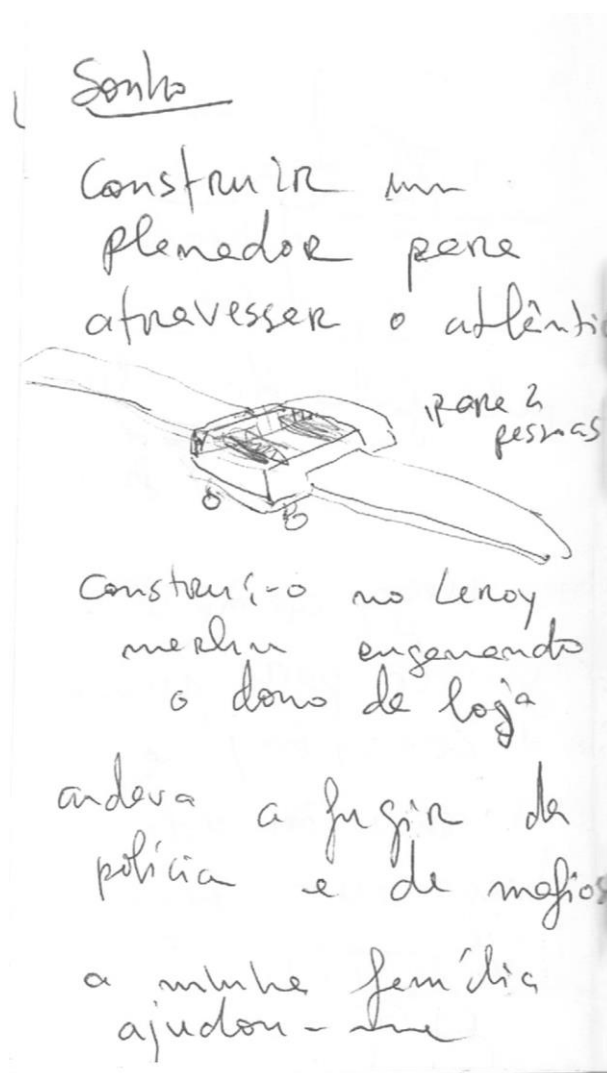 Sonho
Construir um
planador para
atravessar o atlânti
para 2
pessoas
construí-o no Leroy
merlin enganando
o dono da loja
andava a fugir da
polícia e de mafios
a minha família
ajudou-me